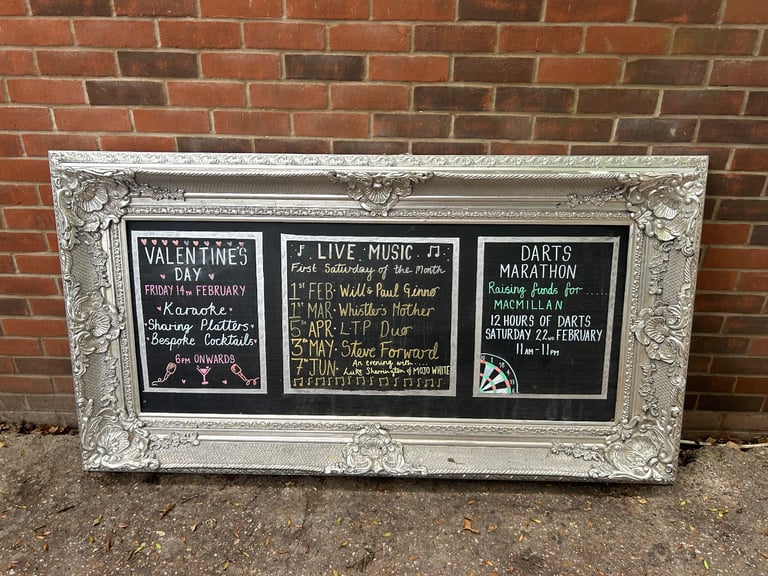 VALENTINE'S
DAY
FRIDAY 14TH FEBRUARY
• Karaoke •
• Sharing Platters •
• Bespoke Cocktails •
6PM ONWARDS
LIVE • MUSIC
First Saturday of the Month
1ST FEB • Will & Paul Ginno
1ST MAR • Whistlers Mother
5TH APR • L.T.P Duo
3RD MAY • Steve Forward
7TH JUN • An evening with
Luke Sherrington of MOJO WHITE
DARTS
MARATHON
Raising funds for ......
MACMILLAN
12 HOURS OF DARTS
SATURDAY 22ND FEBRUARY
11AM - 11PM